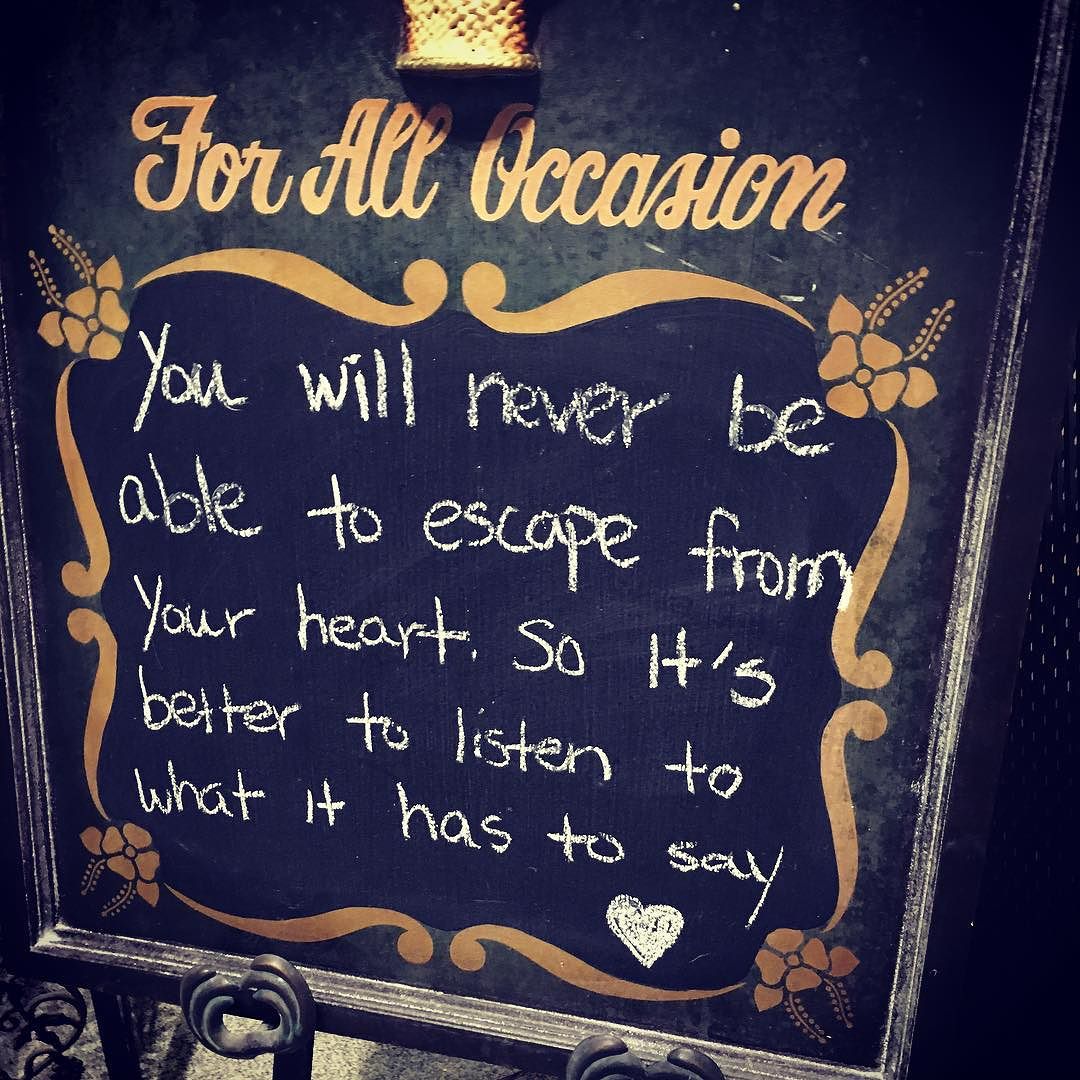 For All Occasion
You will never be
able to escape from
Your heart. So It's
better to listen to
what it has to say